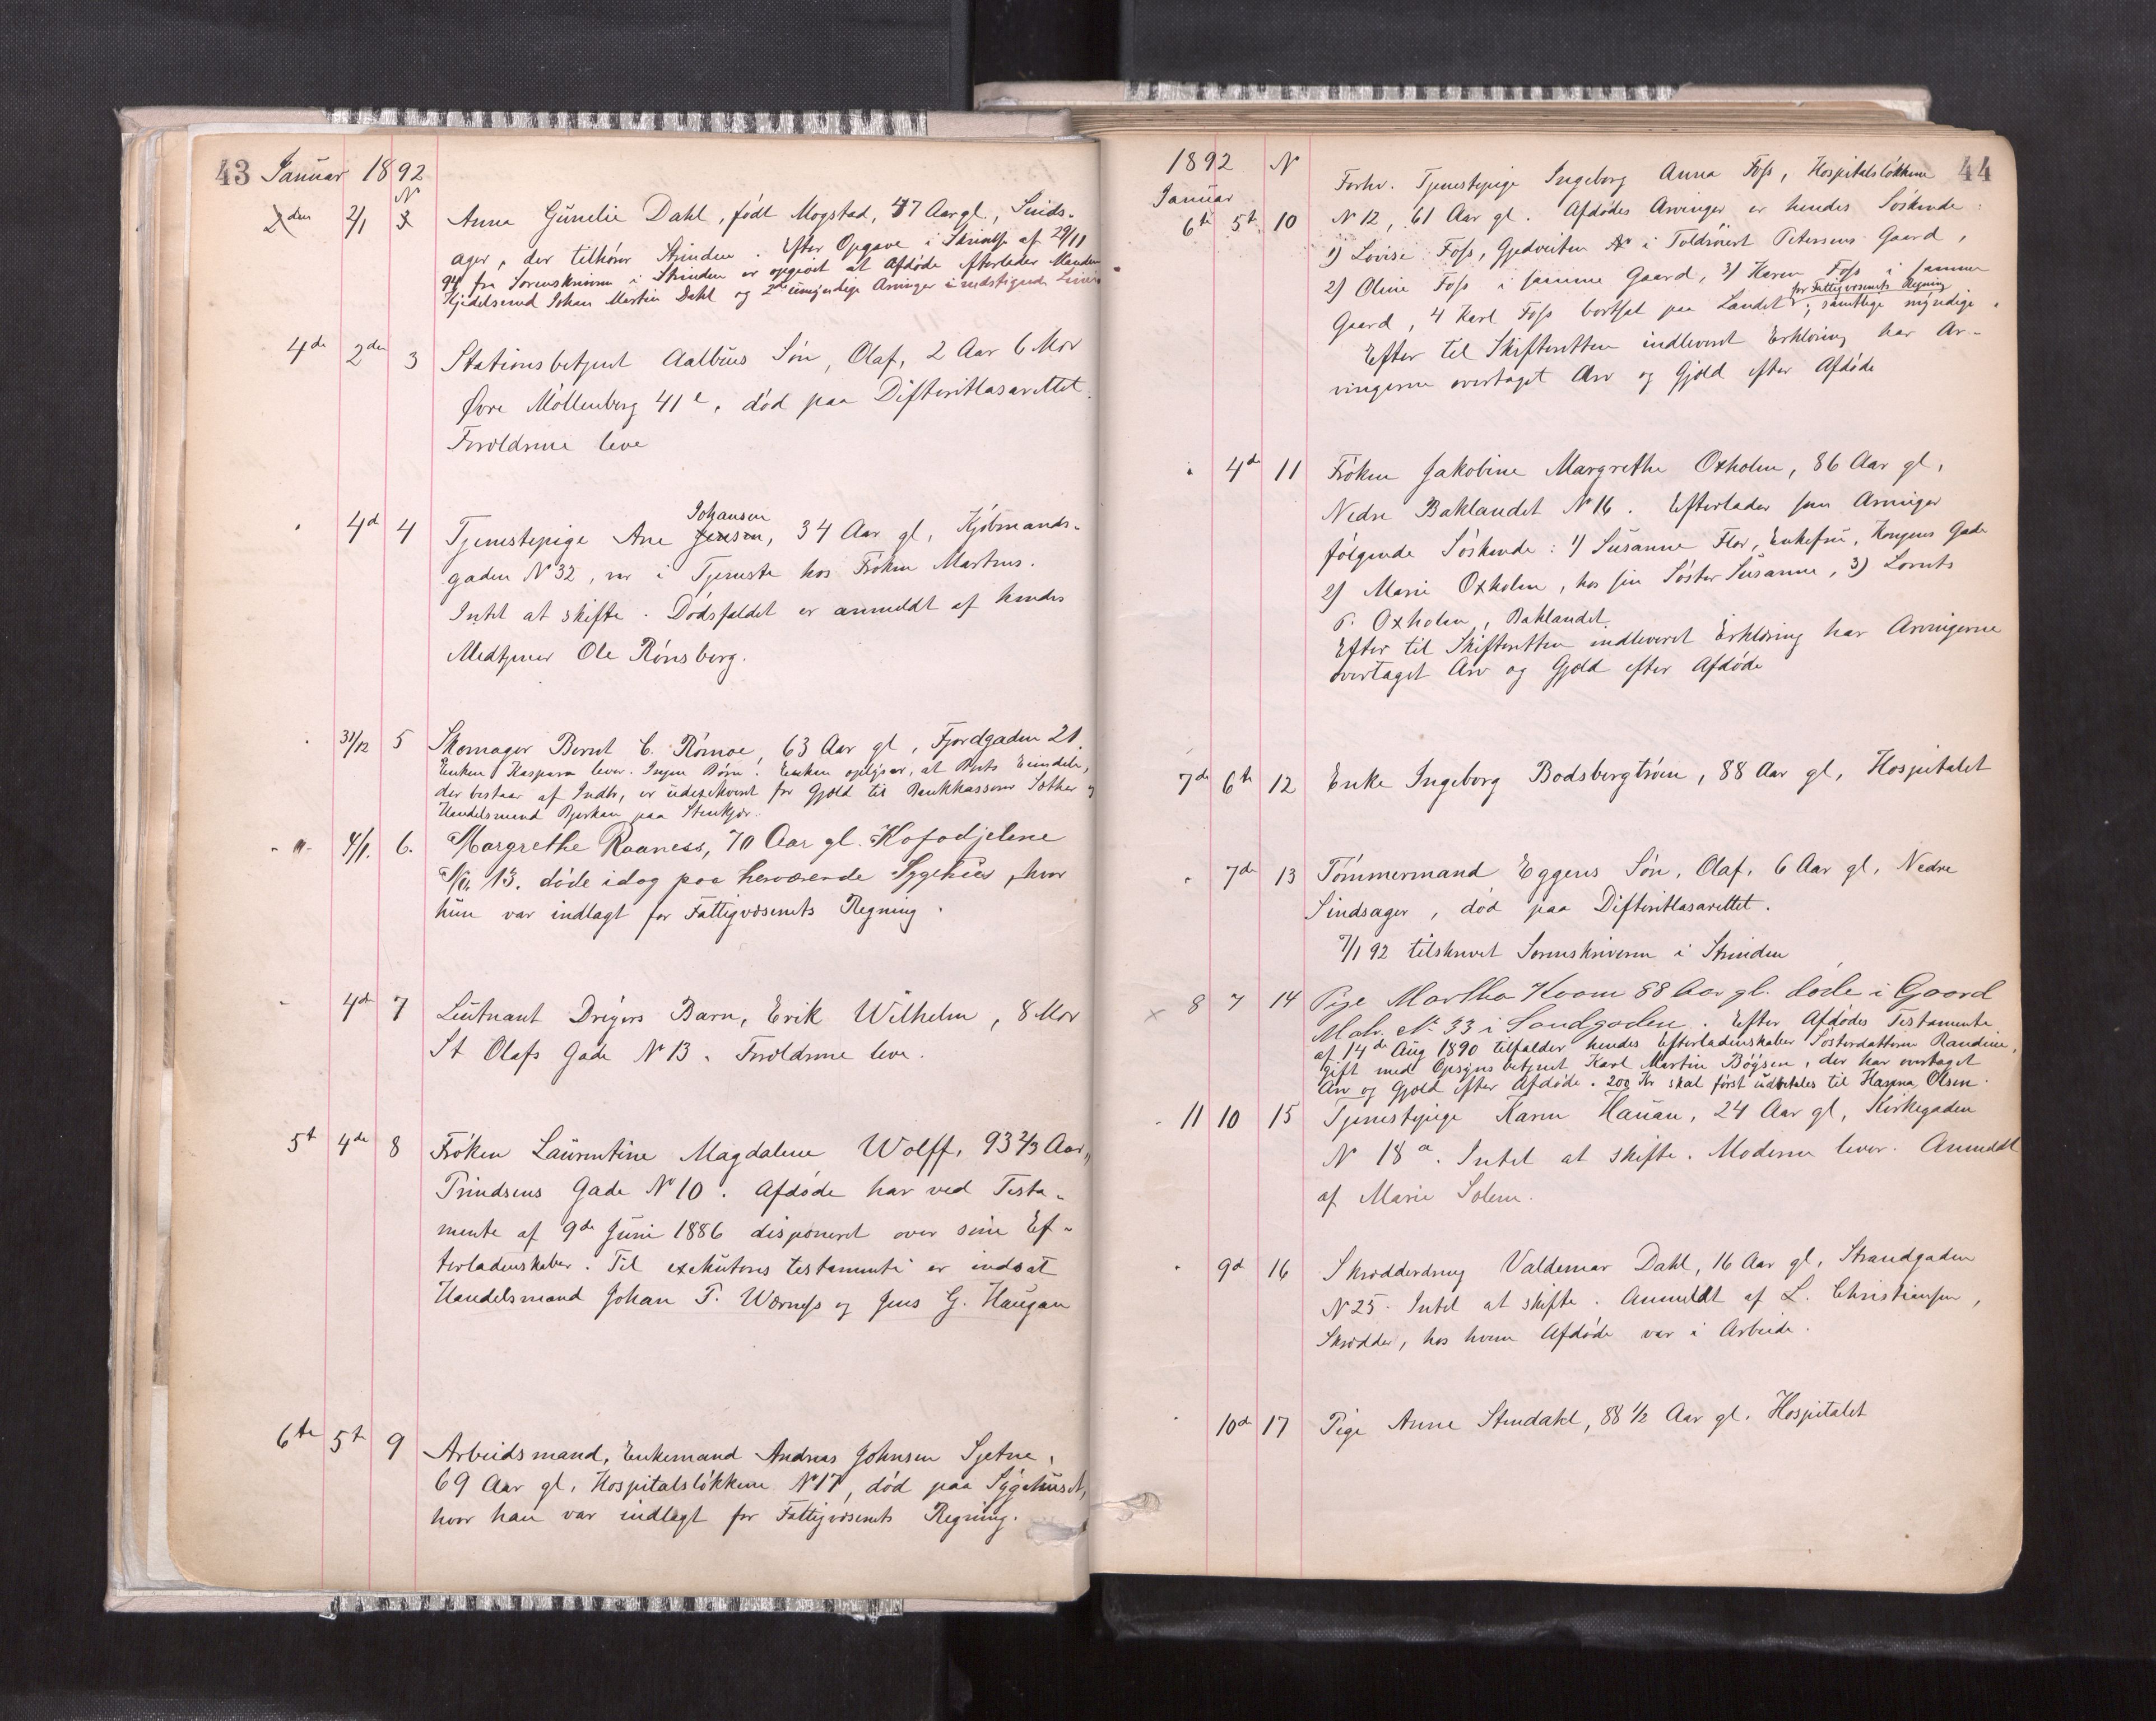 43 Januar 1892
N
2den 2/1 3 Anna Gunelie Dahl, født Mogstad, 47 Aar gl, Sinds-
ager, der tilhører Strinden. Efter Opgave i Skrivelse af 29/11
94 fra Sorenskriveren i Strinden er opgivet at Afdøde efterlader Manden
Kjedelsmed Johan Martin Dahl og 2de umyndige Arvinger i nedstigende Linie
4de 2den 3 Stationsbetjent Aalbus Søn, Olaf, 2 Aar 6 Mdr
Øvre Møllenberg 41e, død paa Difteritlasarettet.
Forældrene leve
" 4d 4 Tjenestepige Ane Jensen, 34 Aar gl, Kjøbmands-
Johansen
gaden No 32, var i Tjeneste hos Frøken Martens.
Intet at skifte. Dødsfaldet er anmeldt af hendes
Medtjener Ole Rønsberg.
" 31/12 5 Skomager Bernt C. Rømoe, 63 Aar gl, Fjordgaden 21.
Enken Kaspara lever. Ingen Børn. Enken oplyser, at Boets Eiendele,
der bestaar af Indbo, er udexekveret for Gjæld til Bankkasserer Sæther og
Handelsmand Bjerkan paa Stenkjær.
- " - 4/1. 6. Margrethe Raaness, 70 Aar gl. Kofodjelene
No 13. døde idag paa herværende Sygehus, hvor
hun var indlagt for Fattigvæsenets Regning.
" 4de 7 Lieutnant Dreyers Barn, Erik Wilhelm, 8 Mdr
St Olafs Gade No 13. Forældrene leve.
5t 4de 8 Frøken Laurentine Magdalene Wolff, 93 2/3 Aar,
Prindsens Gade No 10. Afdøde har ved Testa-
mente af 9de Juni 1886 disponeret over sine Ef-
terladenskaber. Til exekutores testamenti er indsat
Handelsmand Johan P. Wærness og Jens G. Haugan
6te 5te 9 Arbeidsmand, Enkemand Andreas Johnsen Sjetne,
69 Aar gl, Hospitalsløkkene No 17, død paa Sygehuset,
hvor han var indlagt for Fattigvæsenets Regning.
1892 N 44
Januar
6te 5te 10 Forhv. Tjenestepige Ingeborg Anna Foss, Hospitalsløkkene
No 12, 61 Aar gl. Afdødes Arvinger er hendes Søskende:
1) Lovise Foss, Gjedveiten No i Toldrorert Petersens Gaard,
2) Oline Foss i samme Gaard, 3) Karen Foss i samme
for Fattigvæsenets Regning
Gaard, 4 Karl Foss bortsat paa Landet; samtlige myndige.
Efter til Skifteretten indleveret Erklæring har Ar-
vingerne overtaget Arv og Gjæld efter Afdøde
" 4de 11 Frøken Jakobine Margrethe Oxholm, 86 Aar gl,
Nedre Baklandet No 16. Efterlader som Arvinger
følgende Søskende: 1) Susanne Flor, Enkefru, Kongens Gade
2) Marie Oxholm, hos sin Søster Susanne, 3) Lorents
P. Oxholm, Baklandet.
Efter til Skifteretten indleveret Erklæring har Arvingerne
overtaget Arv og Gjæld efter Afdøde
7de 6te 12 Enke Ingeborg Bodsbergtrøen, 88 Aar gl, Hospitalet
" 7de 13 Tømmermand Eggens Søn, Olaf, 6 Aar gl, Nedre
Sindsager, død paa Difteritlasarettet.
7/1 92 tilskrevet Sorenskriveren i Strinden
x 8 7 14 Pige Martha Kvam 88 Aar gl. døde i Gaard
Matr. No 33 i Sandgaden. Efter Afdødes Testamente
af 14de Aug 1890 tilfalder hendes Efterladenskaber Søsterdatteren Randine,
gift med Opsynsbetjent Karl Martin Bøgsen, der har overtaget
Arv og Gjæld efter Afdøde. 200 Kr skal først udbetales til Hanna Olsen.
" 11 10 15 Tjenestepige Karen Hauan, 24 Aar gl, Kirkegaden
No 18a. Intet at skifte. Moderen lever. Anmeldt
af Marie Solem.
" 9d 16 Skrædderdreng Valdemar Dahl, 16 Aar gl, Strandgaden
No 25. Intet at skifte. Anmeldt af L. Christiansen,
Skrædder, hos hvem Afdøde var i Arbeide.
" 10d 17 Pige Anne Stendahl, 88 1/2 Aar gl. Hospitalet